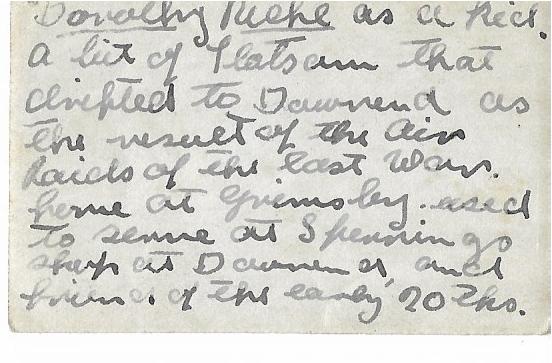 Dorothy Riehl as a kid.
a bit of flatsam that
drifted to Downend as
the result of the Air
Raids of the last War.
home at Grimsby. used
to serve at Spennings
shop at Downend, and
friend of the early 20ths.